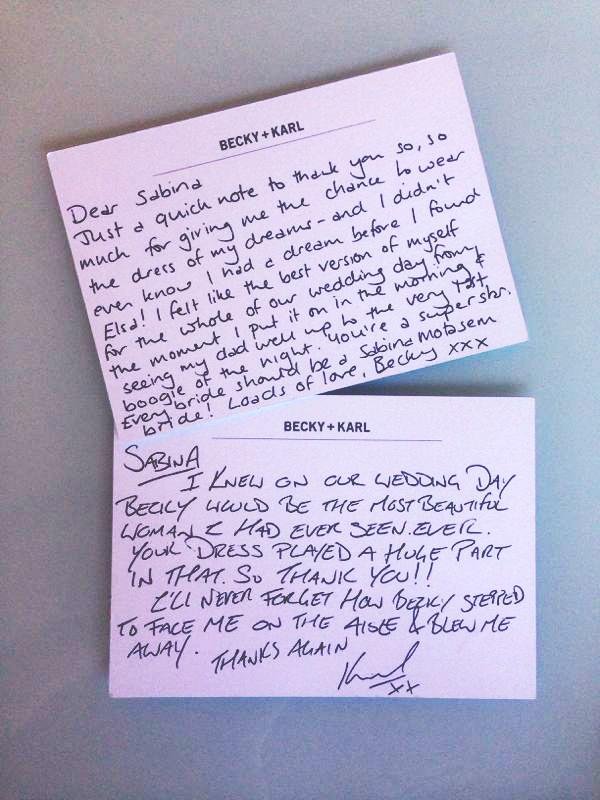 BECKY + KARL
Dear Sabina
Just a quick note to thank you so, so
much for giving me the chance to wear
the dress of my dreams - and I didn't
even know I had a dream before I found
Elsa! I felt like the best version of myself
for the whole of our wedding day from
the moment I put it on in the morning &
seeing my dad well up to the very last
boogie of the night. You're a superstar.
Every bride should be a Sabina Motasem
bride! Loads of love, Becky xxx
BECKY + KARL
SABINA
I KNEW ON OUR WEDDING DAY
BECKY WOULD BE THE MOST BEAUTIFUL
WOMAN I HAD EVER SEEN. EVER.
YOUR DRESS PLAYED A HUGE PART
IN THAT. SO THANK YOU!!
I'LL NEVER FORGET HOW BECKY STEPPED
TO FACE ME ON THE AISLE & BLEW ME
AWAY.
THANKS AGAIN
Karl
xx